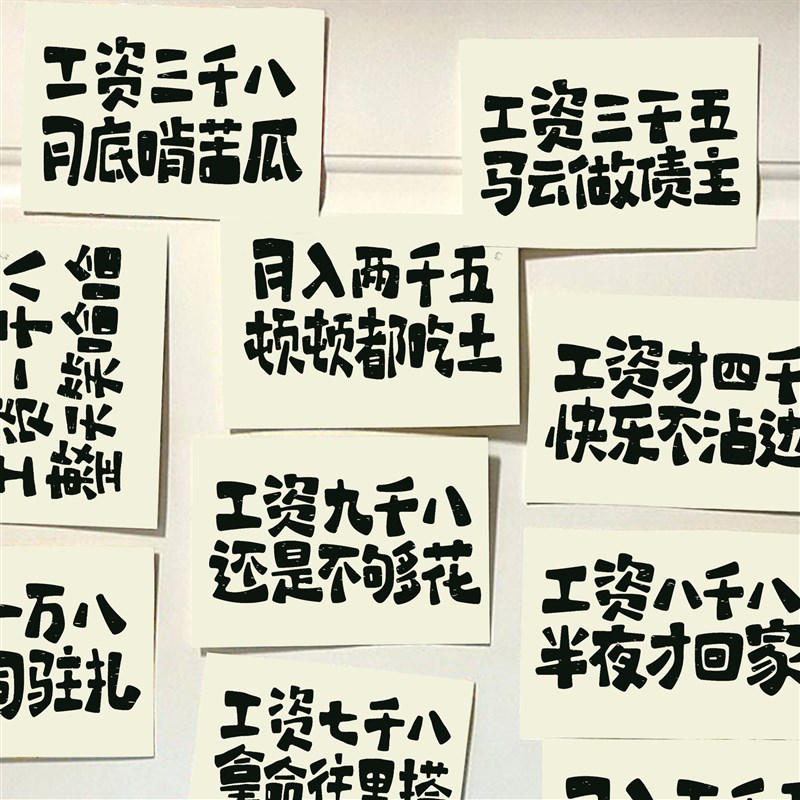 工资三千八
月底啃苦瓜
工资三千五
马云做债主
工资一千八
整天笑哈哈
月入两千五
顿顿都吃土
工资才四千
快乐不沾边
工资九千八
还是不够花
一万八
驻扎
工资八千八
半夜才回家
工资七千八
拿命往里搭
月入